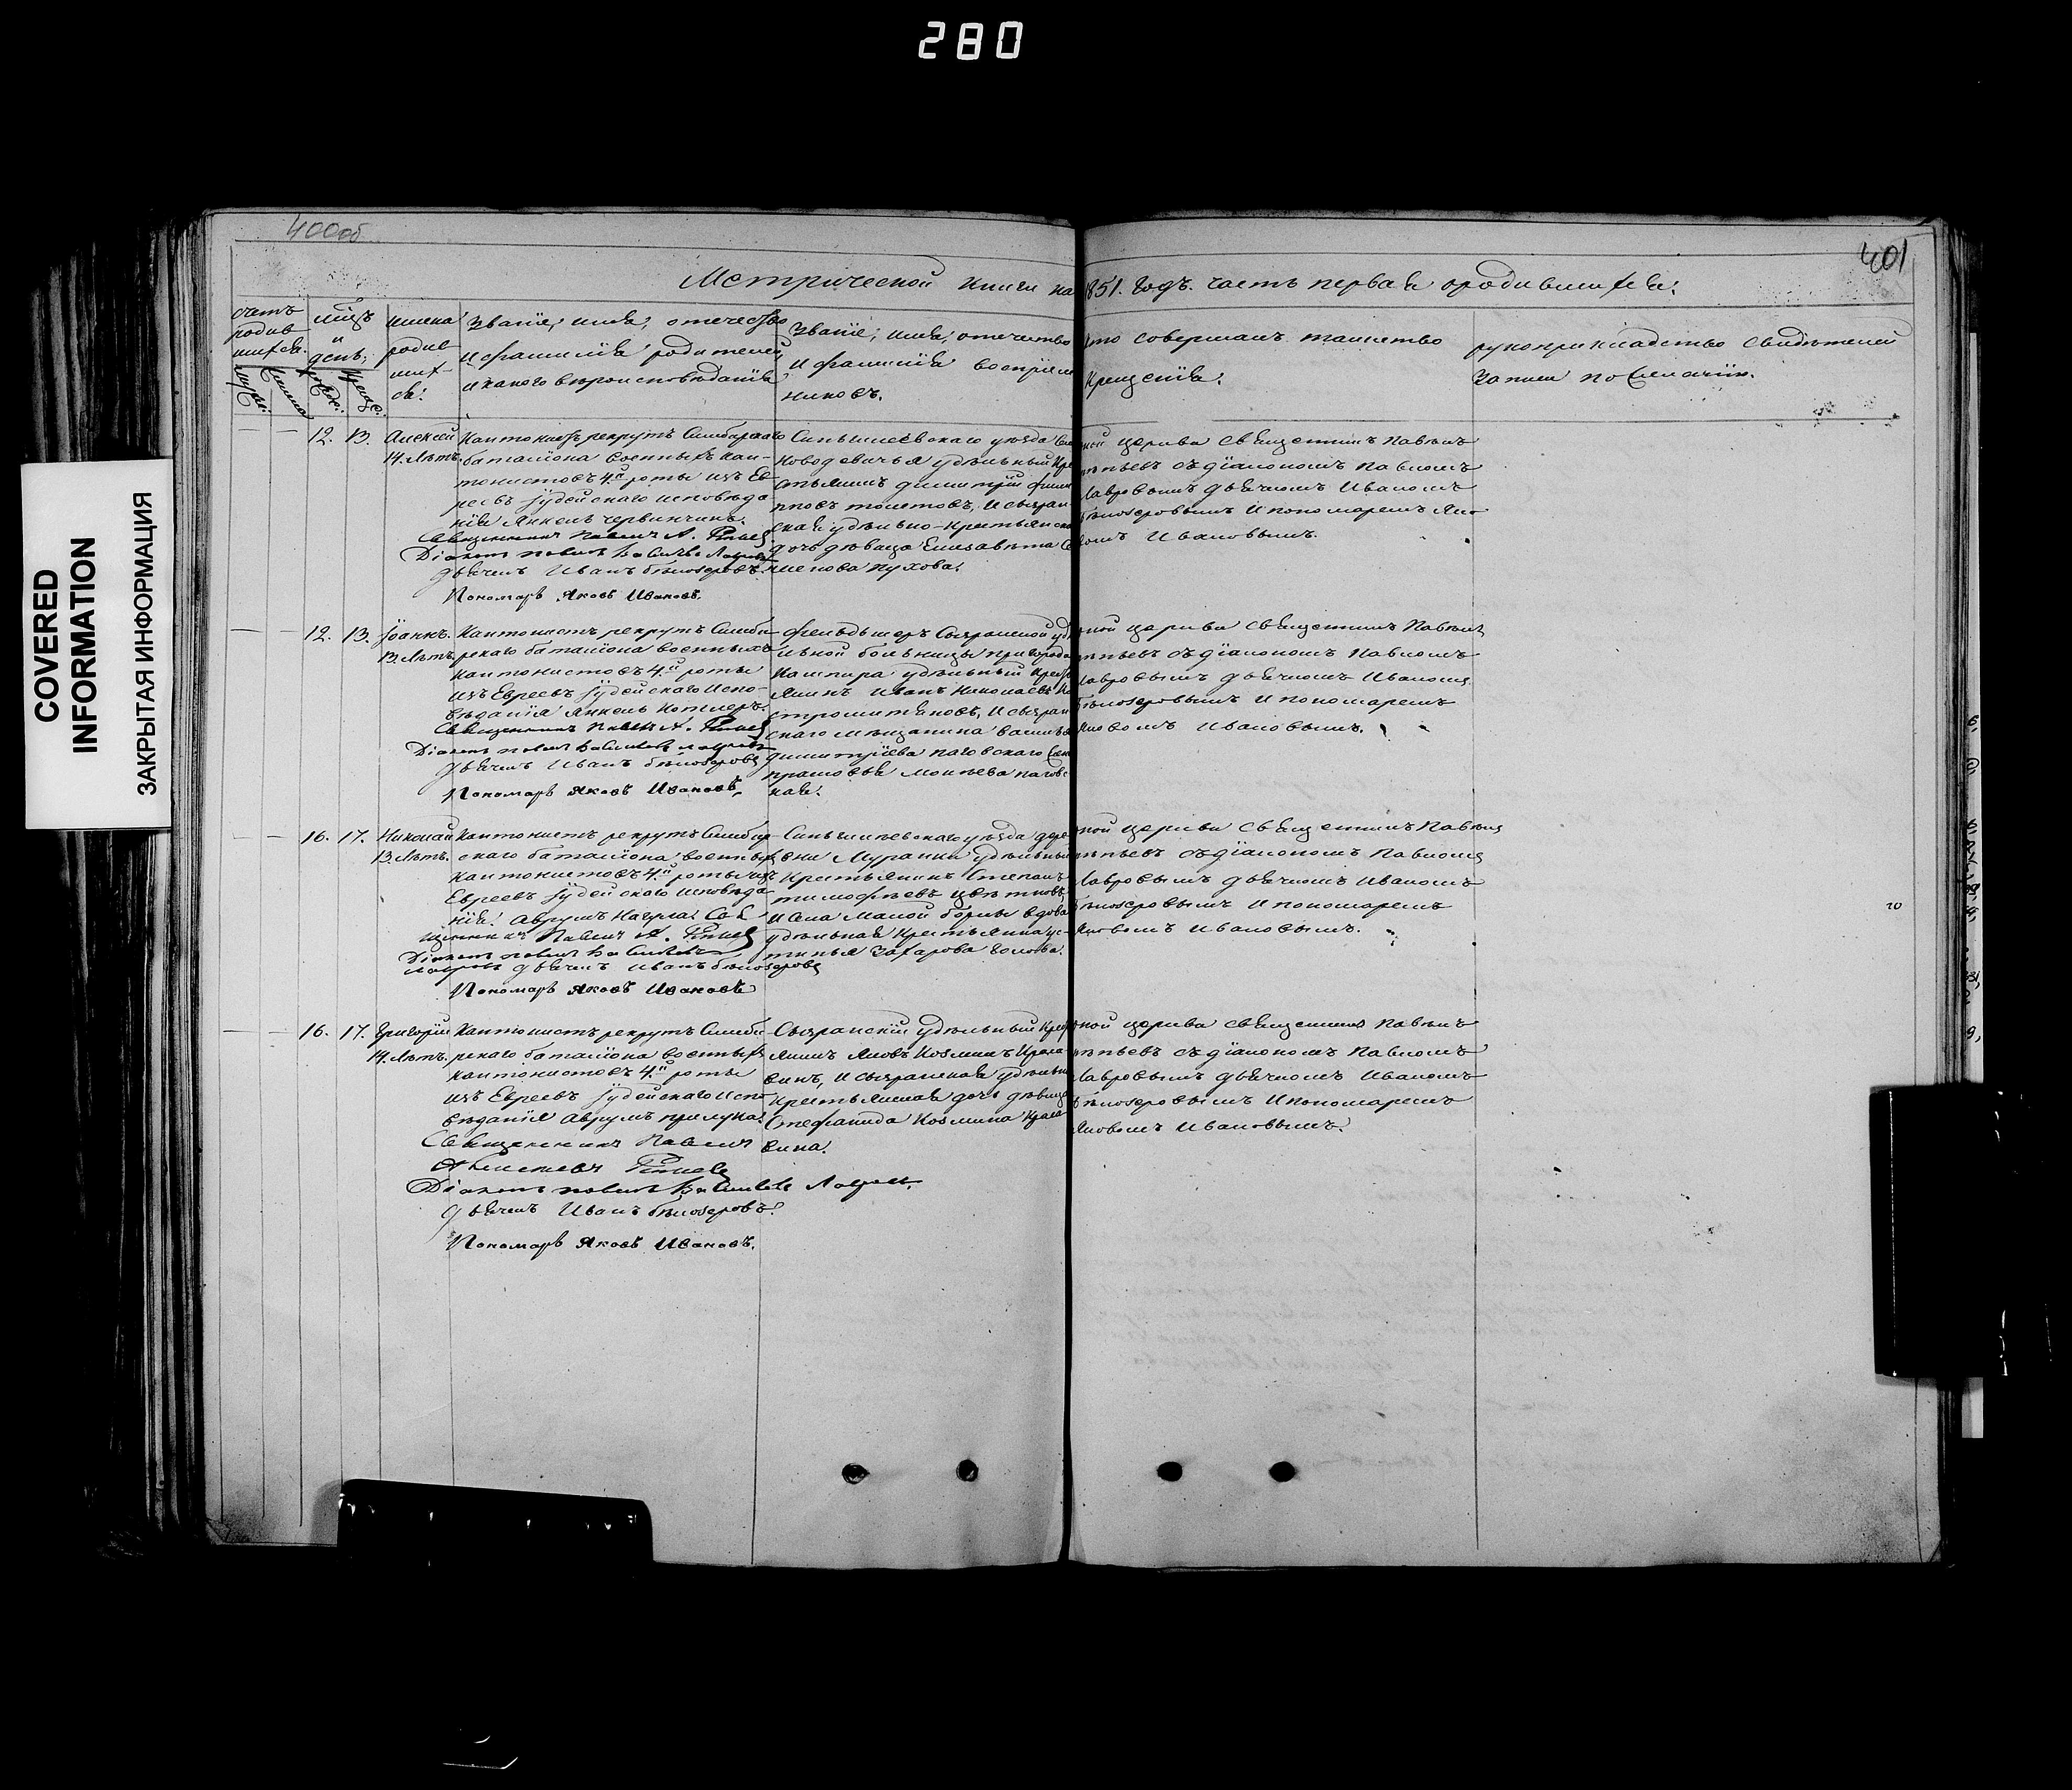 280
400об
401
Метрической книги на 1851. годъ. часть первая о родившихся.
счетъ родив шихся.
мцъ и день,
имена родив шихся.
Званіе, имя, отечество
и фамилія родителей,
и какого вѣроисповѣданія
Званіе, имя, отечество
и фамилія воспріем
никовъ.
Кто совершалъ таинство
крещенія.
рукоприкладство свидѣтелей
записи по желанію.
12. 13. Алексей
14. лѣтъ.
Кантонистъ рекрутъ Симбирскаго
баталіона военныхъ кан-
тонистовъ 4й роты изъ Ев-
реевъ Іудейскаго исповѣда
нія Янкель Червинчикъ.
Священникъ Павелъ А.
Діаконъ Павелъ Васильевъ Лавровъ
дьячекъ Иванъ Бѣлозеровъ.
Пономарь Яковъ Ивановъ.
Сингилеевскаго уѣзда
Новодевичья удѣльный кре
стьянинъ Димитрій Филип
повъ Толстовъ, и сызран-
ская удѣльно-крестьянская
дочь дѣвица Елисавета
Пухова.
ной церкви священникъ Павелъ
съ діакономъ Павломъ
Лавровымъ дьячкомъ Иваномъ
Бѣлозеровымъ и пономаремъ Яко-
вомъ Ивановымъ.
12. 13. Іоаннъ.
13 лѣтъ.
Кантонистъ рекрутъ Симби
рскаго баталіона военныхъ
кантонистовъ 4й роты
изъ Евреевъ Іудейскаго испо-
вѣданія Янкель Котлеръ.
Священникъ Павелъ А.
Діаконъ Павелъ Васильевъ Лавровъ
дьячекъ Иванъ Бѣлозеровъ
Пономарь Яковъ Ивановъ,
Фельдшеръ Сызранской удѣ
льной больницы пригорода
Кашпира удѣльный крест
янинъ Иванъ Николаевъ Ко
стромитяновъ, и сызран
скаго мѣщанина
Димитріева Паговскаго
Моисѣева Пагов
ная церкви священникъ Павелъ
съ діакономъ Павломъ
Лавровымъ дьячкомъ Иваномъ
Бѣлозеровымъ и пономаремъ
Яковомъ Ивановымъ.
16. 17. Николай
13. лѣтъ.
Кантонистъ рекрутъ Симбир
скаго баталіона военныхъ
кантонистовъ 4й роты изъ
Евреевъ Іудейскаго исповѣда
нія Аврумъ Свя
щенникъ Павелъ А.
Діаконъ Павелъ Васильевъ
Лавровъ дьячекъ Иванъ Бѣлозеровъ
Пономарь Яковъ Ивановъ
Сингилеевскаго уѣзда дере
вни Муранки удѣльный
крестьянинъ Степанъ
Тимофѣевъ Цвѣтковъ,
и села Малой Борлы вдова
удѣльная крестьянка Ус-
тинья Захарова
ной церкви священникъ Павелъ
съ діакономъ Павломъ
Лавровымъ дьячкомъ Иваномъ
Бѣлозеровымъ и пономаремъ
Яковомъ Ивановымъ.
16. 17. Григорій
14. лѣтъ.
Кантонистъ рекрутъ Симби
рскаго баталіона военныхъ
кантонистовъ 4й роты
изъ Евреевъ Іудейскаго испо
вѣданія Аврумъ Прилука.
Священникъ Павелъ
Алексѣевъ
Діаконъ Павелъ Васильевъ Лавровъ.
дьячекъ Иванъ Бѣлозеровъ.
Пономарь Яковъ Ивановъ.
Сызранскій удѣльный крест
янинъ Яковъ Козминъ Краса
винъ, и сызранская удѣльно
крестьянская дочь дѣвица
Стефанида Козмина Краса
вина.
ной церкви священникъ Павелъ
съ діакономъ Павломъ
Лавровымъ дьячкомъ Иваномъ
Бѣлозеровымъ и пономаремъ
Яковомъ Ивановымъ.
COVERED
INFORMATION
ЗАКРЫТАЯ ИНФОРМАЦИЯ